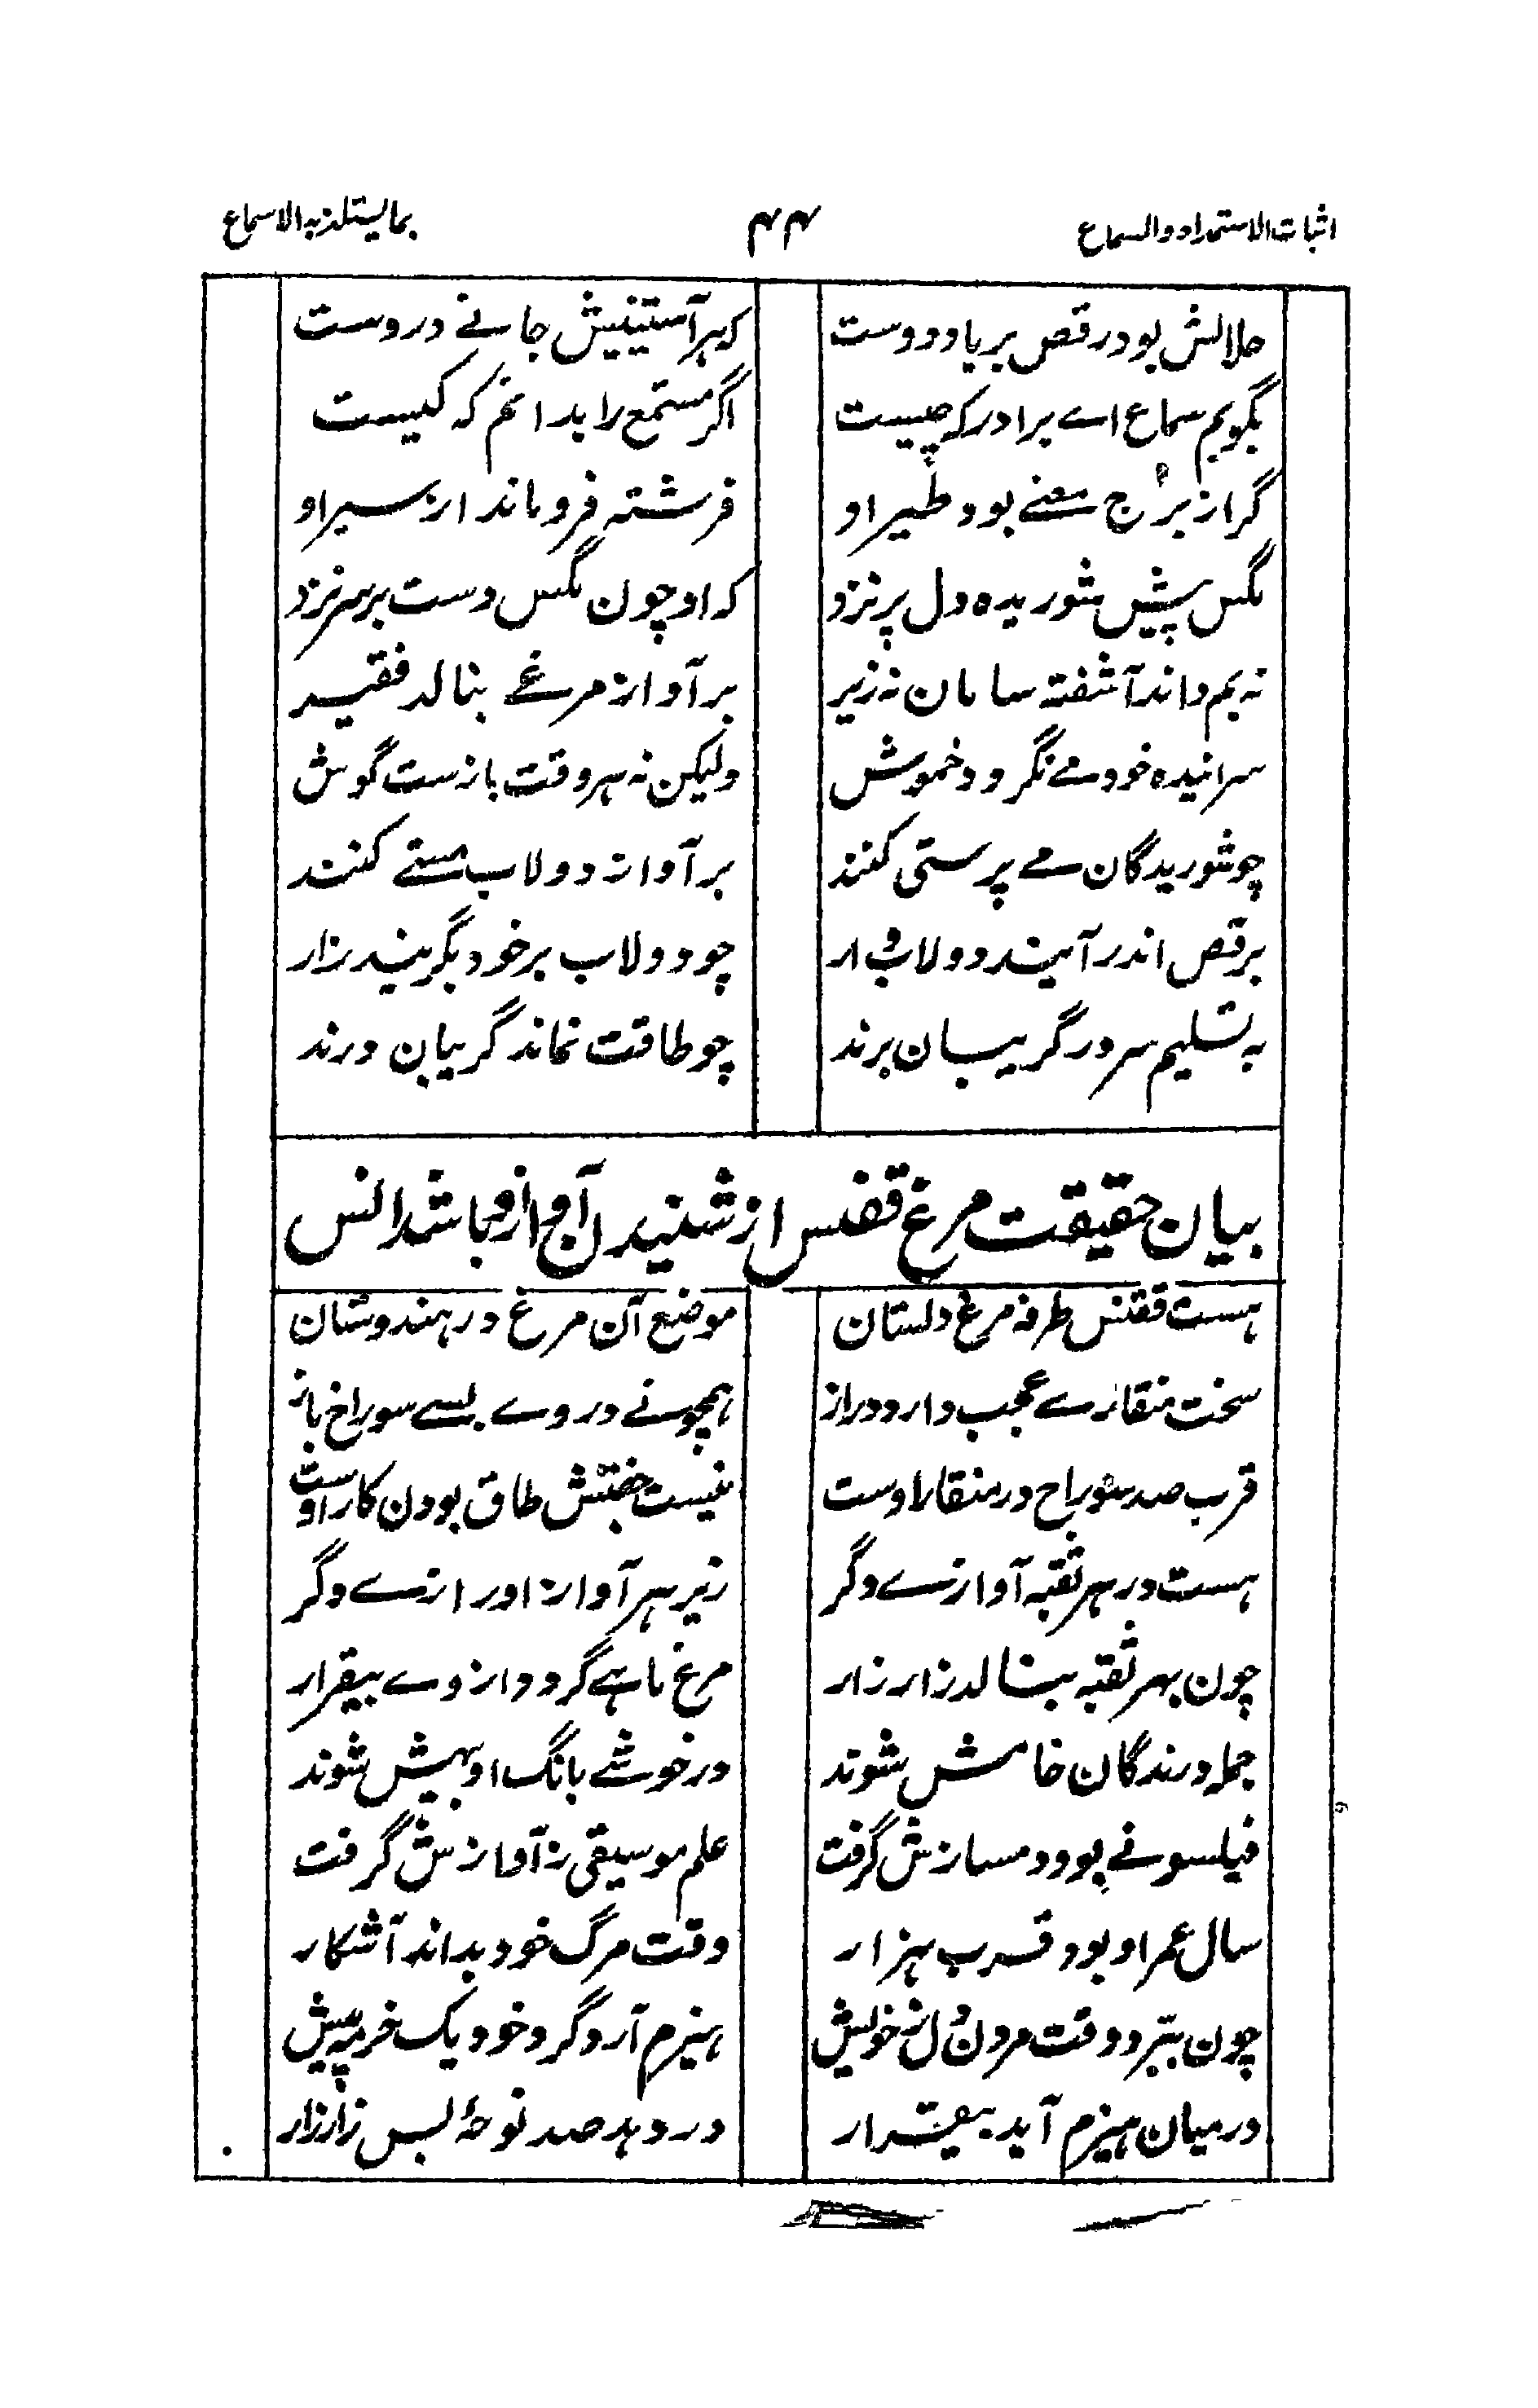 اثبات الاستمداد والسماع ۴۴ بما یستلذ به الاسماع
حلالش بود رقص بر یاد دوست که هر آستینیش جانے دروست
بگویم سماع اے برادر که چیست اگر مستمع را بدانم که کیست
گر از برج معنے بود طیر او فرشته فروماند از سیر او
مگس پیش شوریده دل پر نزد که او چون مگس دست بر سر نزد
نه بم داند آشفته سامان نه زیر بر آواز مرغے بنالد فقیر
سرانیده خود مے نگردد خموش ولیکن نه هر وقت باز ست گوش
چو شوریدگان مے پرستی کنند بر آواز دولاب مستے کنند
برقص اندر آیند دولاب وار چو دولاب بر خود بگریند زار
به تسلیم سر در گریبان برند چو طاقت نماند گریبان درند
بیان حقیقت مرغ ققنس از شنیدن آواز او باشد انس
هست ققنس طرفه مرغ دلستان موضع آن مرغ در هندوستان
سخت منقارے عجب دارد دراز همچو نے در وے بسے سوراخ باز
قرب صد سوراخ در منقار اوست نیست جفتش طاق بودن کار اوست
هست در هر ثقبه آوازے دگر زیر هر آواز او رازے دگر
چون بهر ثقبه بنالد زار زار مرغ ماهے گردد از وے بیقرار
جمله درندگان خامش شوند در خوشے بانگ او بیهش شوند
فیلسوفے بود دمسازش گرفت علم موسیقی ز آوازش گرفت
سال عمر او بود قرب هزار وقت مرگ خود بداند آشکار
چون ببرد وقت مردن دل ز خویش هیزم آرد گرد خود یک خرمه پیش
در میان هیزم آید بیقرار در دهد صد نوحۀ بس زار زار